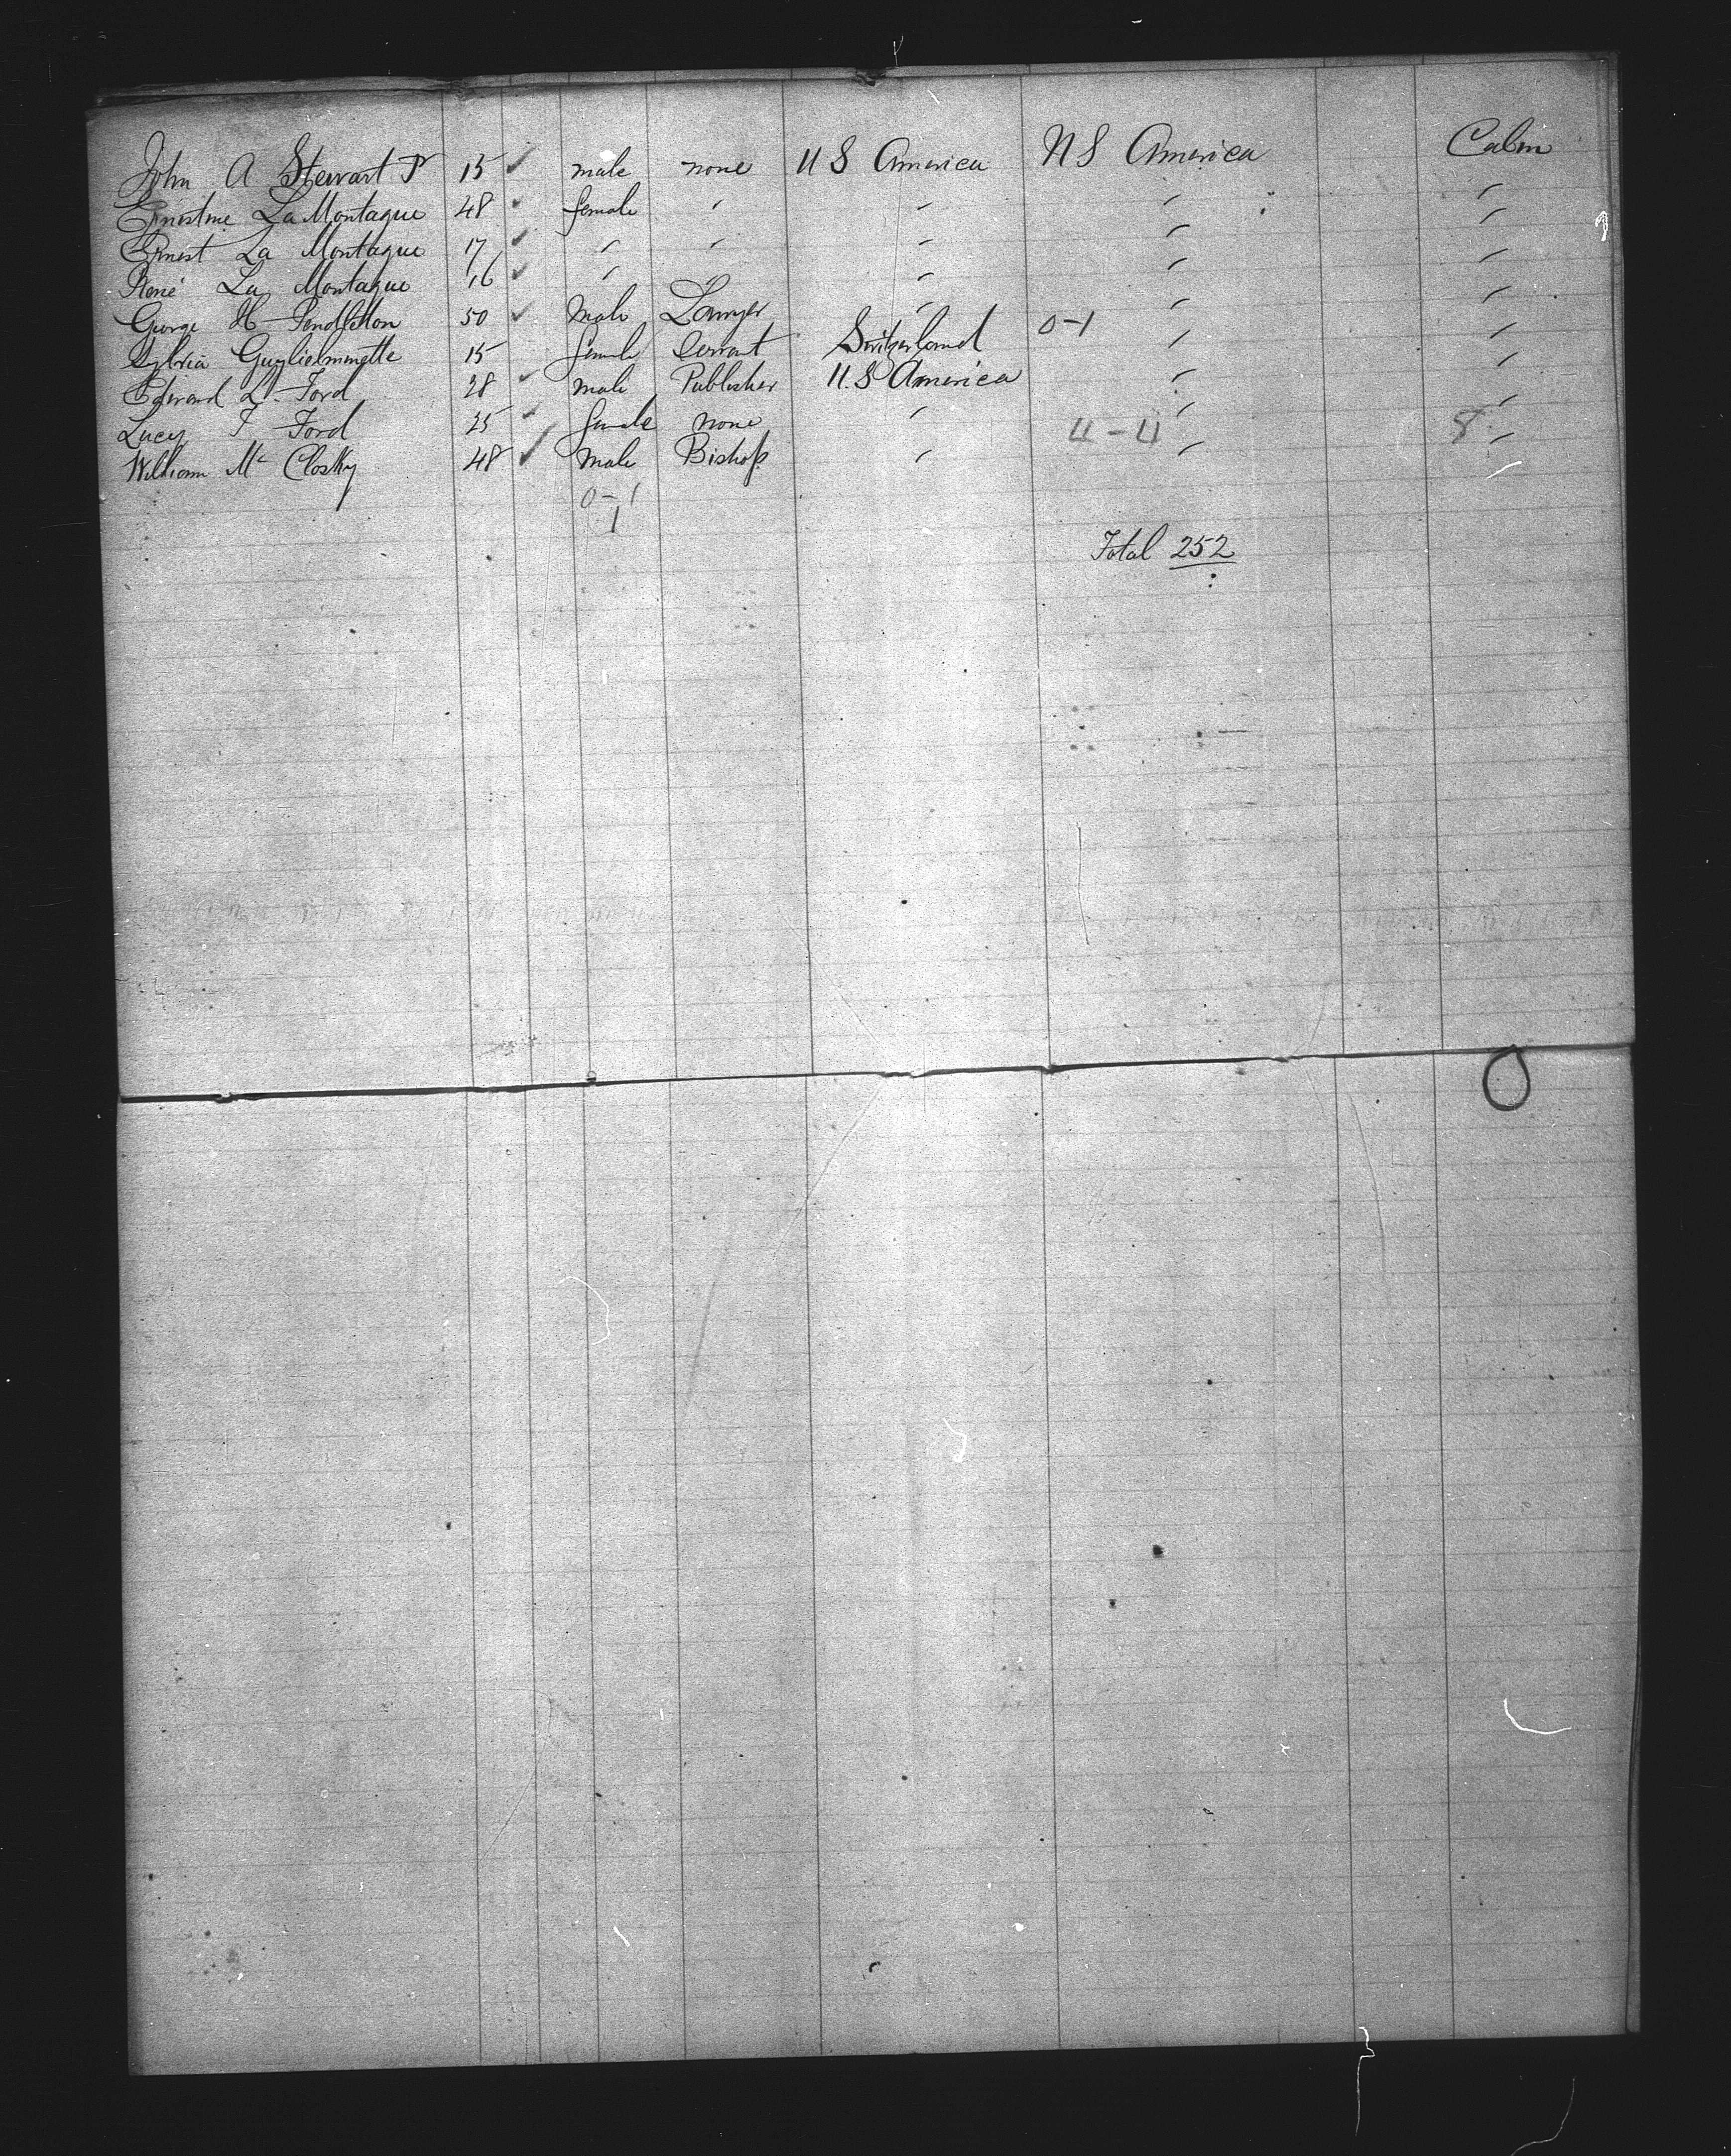 John A Stewart Jr 15 ✓ male none U S America U S America Cabin
Ernestine La Montague 48 ✓ female " " " "
Ernest La Montague 17 ✓ " " " " "
René La Montague 16 ✓ " " " "
George H Pendleton 50 ✓ Male Lawyer " " "
Sylvia Guglielminette 15 female Servant Switzerland 0-1 " "
Edward L Ford 28 ✓ male Publisher U.S America " "
Lucy F Ford 25 ✓ female none " " "
4-4 8
William Mc Closky 48 ✓ Male Bishop " " "
0-1
1
Total 252